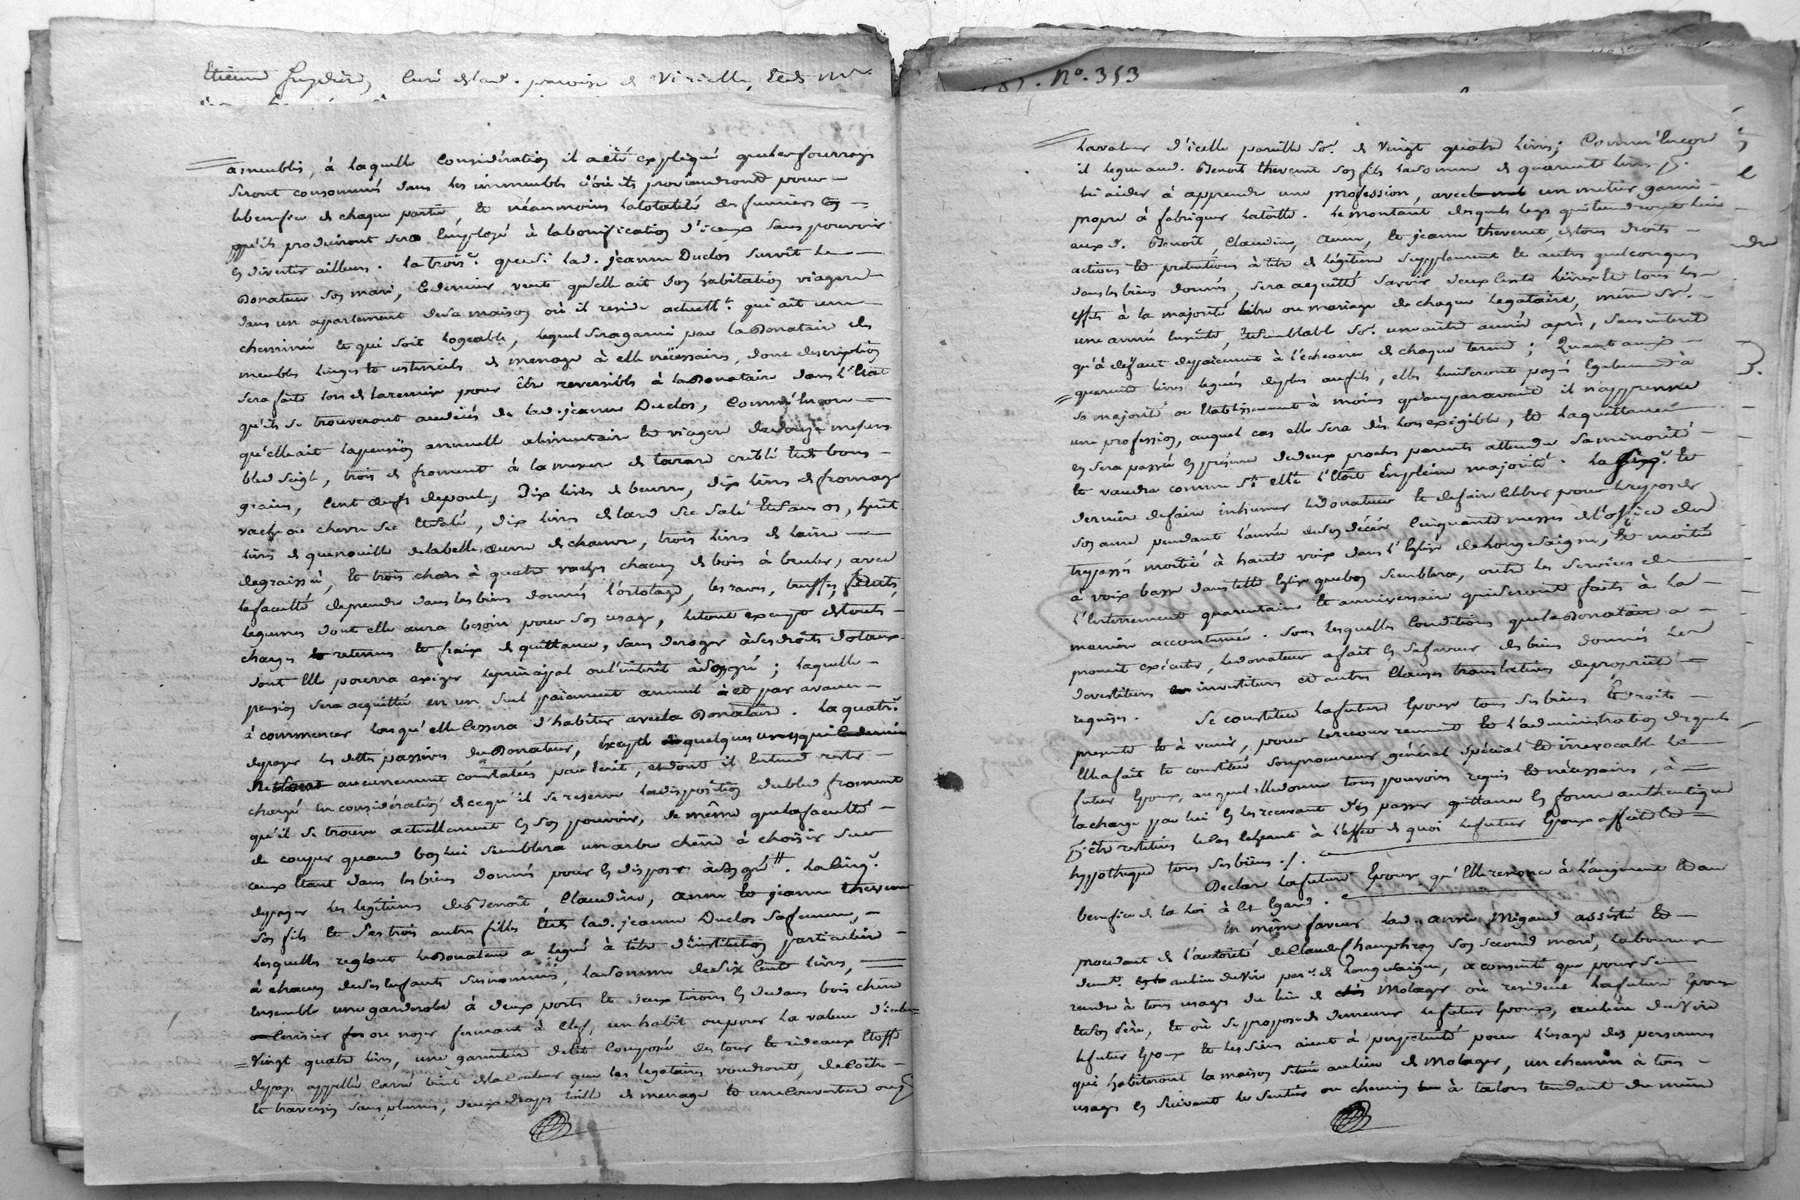 Etienne curé de lad. paroisse de Viricelle, 
ameublis, à laquelle considération il a été expliqué que les fourrages
seront consommés dans les immeubles d'où ils proviendront pour
le bénéfice de chaque partie, et néanmoins la totalité des fumiers
qu'ils produiront sera employé à la bonification d'iceux sans pouvoir
les divertir ailleurs. La trois.e que si lad. jeanne Duclos survit le
Donateur son mari, ce dernier veut qu'elle ait son habitation viagere
dans un appartement de sa maison où il reside actuell.t qui ait une
cheminée et qui soit logeable, lequel sera garni par la Donataire des
meubles linges et ustenciles de menage à elle nécessaires, dont description
sera faite lors de la remise pour être reversible à la Donataire dans l'état
qu'ils se trouveront au décès de lad. jeanne Duclos, comm'encore
qu'elle ait la pension annuelle alimentaire et viagere de douze mesures
bled seigle, trois de froment à la mesure de tarare criblé tous bons
grains, cent œufs de poules, dix livres de beurre, dix livres de fromage
vache ou chevre sec et salé, dix livres de lard sec salé et sans os, huit
livres de quenouille de la belle œuvre de chanvre, trois livres de laine
degraissée, et trois chars à quatre vaches chacun de bois à bruler, avec
la faculté de prendre dans les biens donnés l'ortolage, les raves, truffes, fruits,
legumes dont elle aura besoin pour son usage, le tout exempt de toutes
charges et retenues et fraix de quittance, sans deroger à ses droits dotaux
dont elle pourra exiger le principal ou l'interêt à son gré; laquelle
pension sera acquittée en un seul paiement annuel et par avance
à commencer lorsqu'elle cessera d'habiter avec la Donataire. La quatr.e
de payer les dettes passives du Donateur, excepté quelques unes
 aucunement constatées par ecrit, et dont il entend rester
chargé en considération de ce qu'il se reserve la disposition du bled froment
qu'il se trouve actuellement en son pouvoir, de même que la faculté
de couper quand bon lui semblera un arbre chêne à choisir sur
ceux étant dans les biens donnés pour en disposer à son gré. La cinq.e
de payer les légitimes des Benoit, Claudine, Anne et jeanne thevenet
ses fils et ses trois autres filles et de lad. jeanne Duclos sa femme,
lesquelles reglant le Donateur a legué à titre d'institution particuliere
à chacun de ses enfants susnommés, la somme de six cents livres,
ensemble une garderobe à deux portes et deux tiroirs en dedans bois chêne
cerisier ou noyer fermant à clef, un habit ou pour la valeur d'icelui
vingt quatre livres, une garniture de lit composée des tour et rideaux étoffe
de pays appellée carré teint de la couleur que les legataires voudront, de coëtre
et traversin sans plumes, deux draps toille de menage et une couverture ou
N.o 353
la valeur d'icelle pareille so.e de vingt quatre livres; Comm'encore
il legue aud. Benoit thevenet son fils la somme de quarante livres p.r
lui aider à apprendre une profession, avec un metier garni
propre à fabriquer la toille. Le montant desquels legs qui tiendront lieu
auxd. Benoît, Claudine, Anne, et jeanne thevenet, de tous droits
actions et pretentions à titre de légitime supplement et autres quelconques
dans les biens donnés, sera acquitté savoir deux cents livres et tous les
effets à la majorité ou mariage de chaque legataire, même so.e
une année ensuite, et semblable so.e une autre année après, sans interêt
qu'à défaut de paiement à l'echeance de chaque terme; Quant aux
quarante livres leguées de plus au fils, elles lui seront payées egalement à
sa majorité ou etablissement à moins qu'auparavant il n'apprenne
une profession, auquel cas elle sera dès lors exigible, et la quittance
en sera passée en présence de deux proches parents attendu sa minorité
et vaudra comme si elle l'étoit en pleine majorité. La six.e et
derniere de faire inhumer le donateur et de faire celebrer pour le repos de
son ame pendant l'année de son décès cinquante messes de l'office des
trepassés moitié à haute voix dans l'Eglise de Longessaigne, et moitié
à voix basse dans telle Eglise que bon semblera, outre les services de
l'enterrement quarantaine et anniversaire qui seront faits à la
maniere accoutumée. Sous lesquelles conditions que la Donataire a
promit executer, le donateur a fait en sa faveur des biens donnés les
devestitures investitures et autres clauses translatives de proprieté
requises. Se constitue la future Epouse tous ses biens et droits
presents et à venir, pour le recouvrement et l'administration desquels
elle a fait et constitué son procureur général special et irrevocable le
futur Epoux, auquel elle donne tous pouvoirs requis et nécessaires, à
la charge par lui en les recevant d'en passer quittance en forme authentique
p.r être restitués le cas echeant à l'effet de quoi le futur Epoux affecte et
hypotheque tous ses biens ./.
Declare la future Epouse qu'elle renonce à l'augment et au
benefice de la loi à cet egard.
En même faveur lad. anne Migaud assistée et
procedant de l'autorité de Claude Champhray son second mari, laboureur
dem.t au lieu du Vir par.se de Longessaigne, a consenti que pour se
rendre à tous usages du lieu de Molager où resident la future Epouse
et son Père, et où se propose de demeurer le futur Epoux, au lieu du Vir
le futur Epoux et les siens aient à perpetuité pour l'usage des personnes
qui habiteront la maison située au lieu de Molager, un chemin à tous
usages en suivant le sentier ou chemin à talons tendant du même